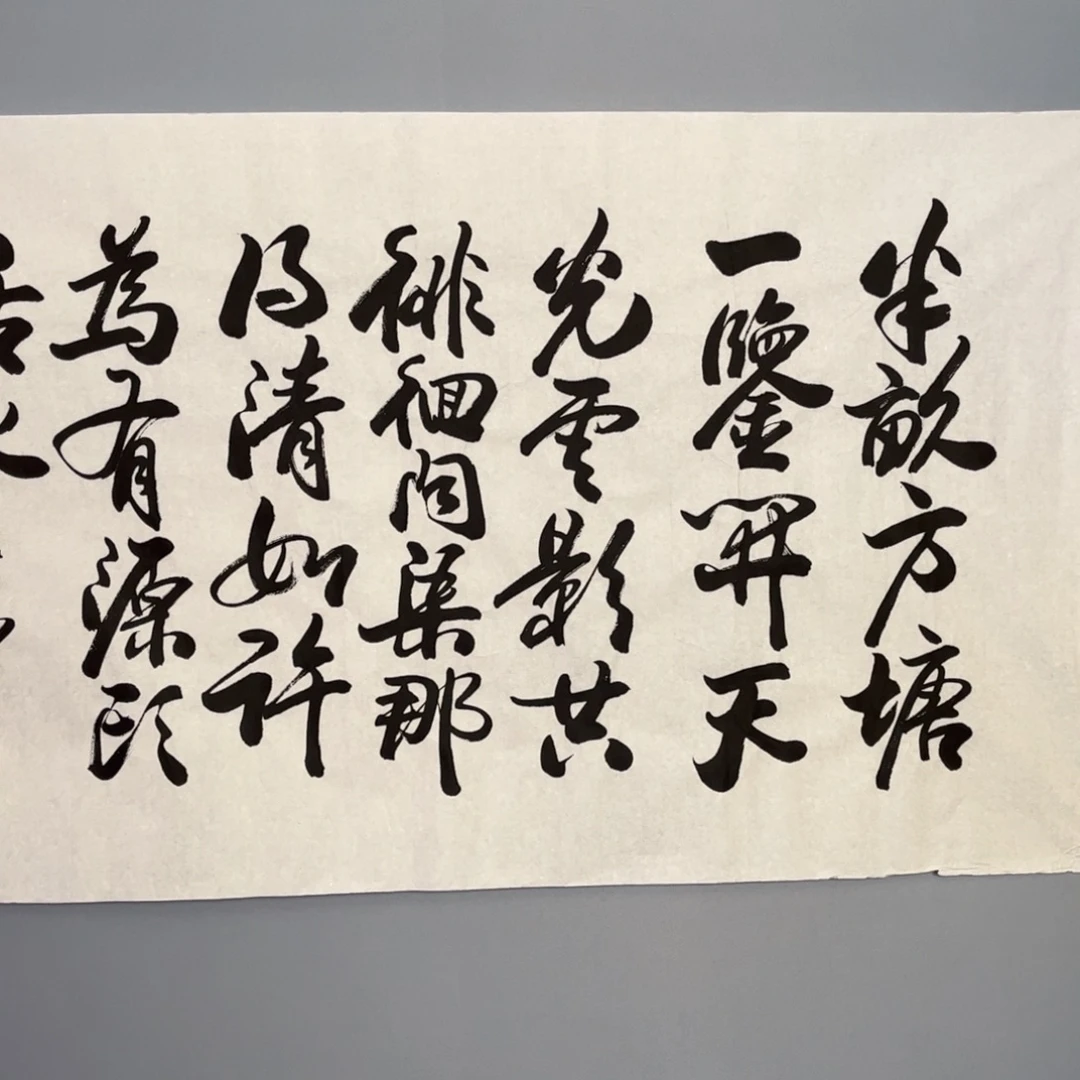 半畝方塘
一鑒開天
光雲影共
徘徊問渠那
得清如許
為有源頭
活水